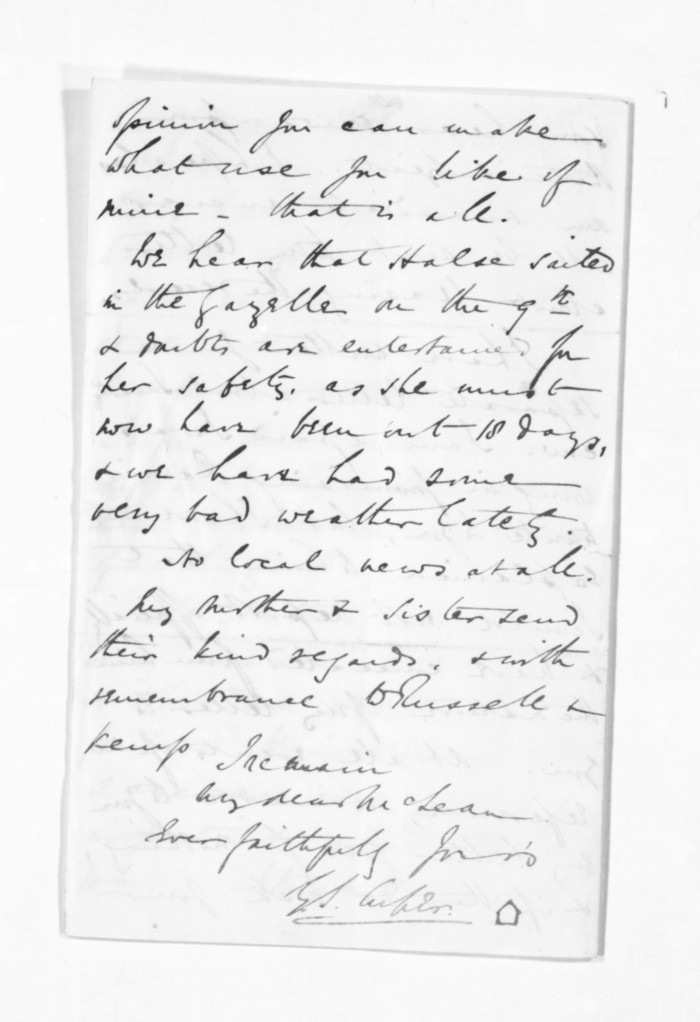 opinion you can make
what use you like of
mine - that is all.
We hear that Halse sailed
in the Gazelle on the 9th
& doubts are entertained for
her safety. as she must
now have been out 18 days,
& we have had some
very bad weather lately.
No local news at all.
My Mother & Sister send
their kind regards. & with
remembrance to Russell &
Kemp I remain
My dear McLean
Ever faithfully Yours
G S. Cooper.